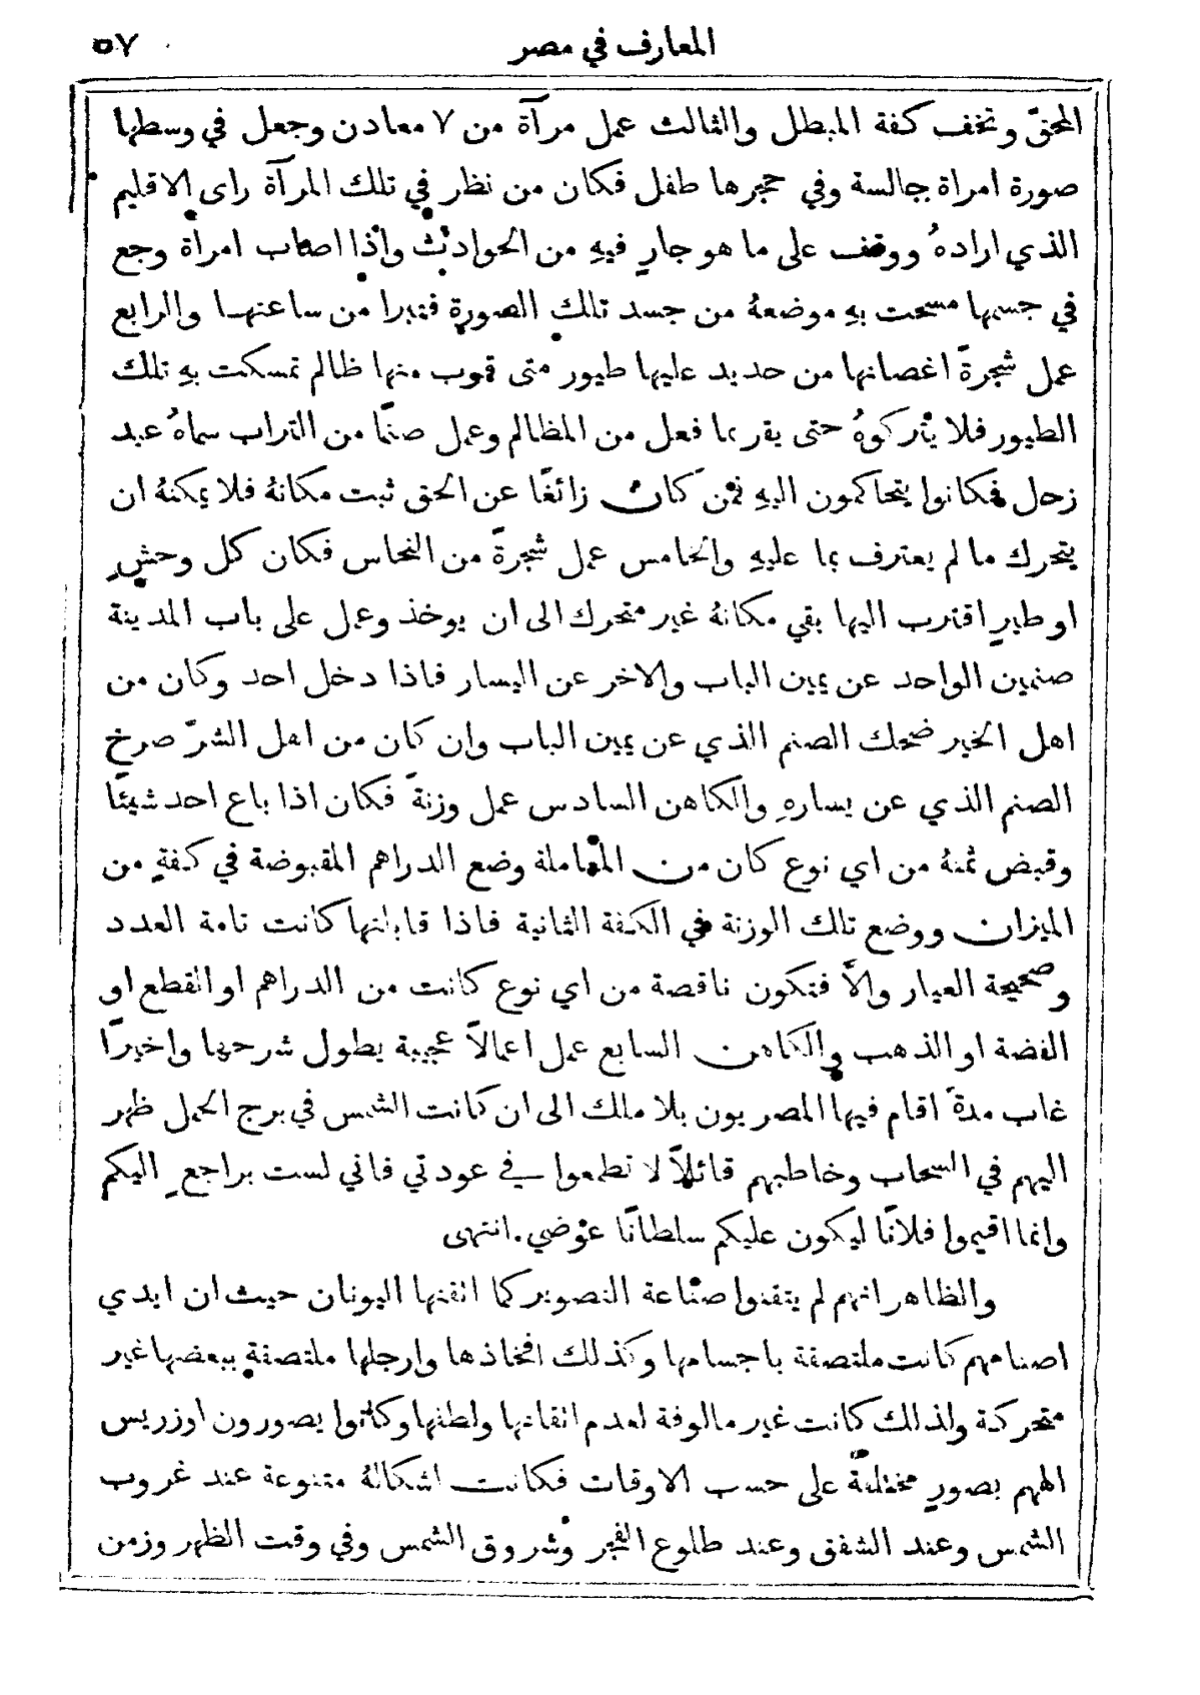 المعارف في مصر ٥٧
المحقّ وتخف كفة المبطل والثالث عمل مرآة من ٧ معادن وجعل في وسطها
صورة امراة جالسة وفي حجرها طفل فكان من نظر في تلك المرآة راى الاقليم
الذي ارادهُ ووقف على ما هو جارٍ فيهِ من الحوادث واذا اصاب امراة وجع
في جسمها مسحت بهِ موضعهُ من جسد تلك الصورة فتبرا من ساعتها والرابع
عمل شجرةً اغصانها من حديد عليها طيور متى قرب منها ظالم تمسكت بهِ تلك
الطيور فلا يتركوهُ حتى يقر بما فعل من المظالم وعمل صنمًا من التراب سماهُ عبد
زحل فكانوا يتحاكمون اليهِ فمن كان زائغًا عن الحق ثبت مكانهُ فلا يمكنهُ ان
يتحرك ما لم يعترف بما عليهِ والخامس عمل شجرةً من النحاس فكان كل وحشٍ
او طيرٍ اقترب اليها بقي مكانهُ غير متحرك الى ان يوخذ وعمل على باب المدينة
صنمين الواحد عن يمين الباب والاخر عن اليسار فاذا دخل احد وكان من
اهل الخير ضحك الصنم الذي عن يمين الباب وان كان من اهل الشرّ صرخ
الصنم الذي عن يسارهِ والكاهن السادس عمل وزنةً فكان اذا باع احد شيئًا
وقبض ثمنهُ من اي نوع كان من المعاملة وضع الدراهم المقبوضة في كفةٍ من
الميزان ووضع تلك الوزنة في الكفة الثانية فاذا قابلتها كانت تامة العدد
وصحيحة العيار والاَّ فتكون ناقصة من اي نوع كانت من الدراهم او القطع او
الفضة او الذهب والكاهن السابع عمل اعمالاً عجيبة يطول شرحها واخيرًا
غاب مدةً اقام فيها المصريون بلا ملك الى ان كانت الشمس في برج الحمل ظهر
اليهم في السحاب وخاطبهم قائلاً لا تطمعوا في عودتي فاني لست براجعٍ اليكم
وانما اقيموا فلانًا ليكون عليكم سلطانًا عوضي. انتهى
والظاهر انهم لم يتقنوا صناعة التصوير كما اتقنها اليونان حيث ان ايدي
اصنامهم كانت ملتصقة باجسامها وكذلك افخاذها وارجلها ملتصقة ببعضها غير
متحركة ولذلك كانت غير مالوفة لعدم اتقانها ولطفها وكانوا يصورون اوزريس
الههم بصورٍ مختلفة على حسب الاوقات فكانت اشكالهُ متنوعة عند غروب
الشمس وعند الشفق وعند طلوع الفجر وشروق الشمس وفي وقت الظهر وزمن